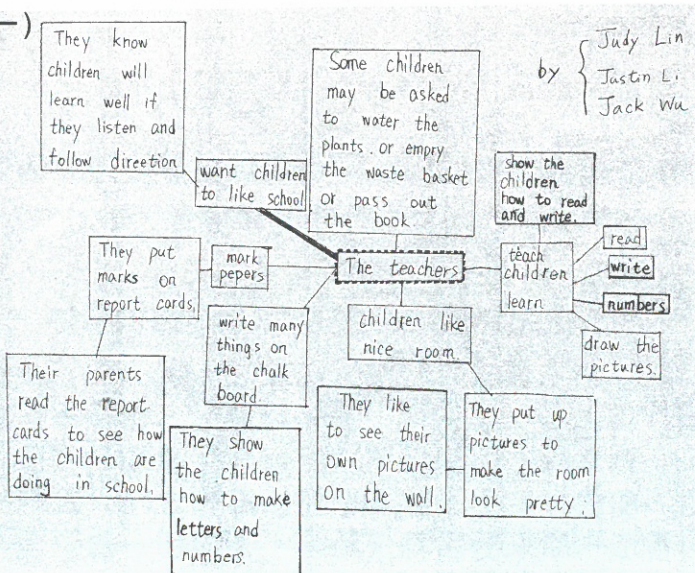 一)
They know
children will
learn well if
they listen and
follow direetion
Some children
may be asked
to water the
plants. or empry
the waste basket
or pass out
the book
by
Judy Lin
Justin Li
Jack Wu
want children
to like school
show the
children
how to read
and write.
They put
marks on
report cards.
mark
pepers
The teachers
teach
children
learn
read
write
numbers
draw the
pictures.
write many
things on
the chalk
board.
children like
nice room.
Their parents
read the report
cards to see how
the children are
doing in school.
They show
the children
how to make
letters and
numbers.
They like
to see their
own pictures
on the wall.
They put up
pictures to
make the room
look pretty.